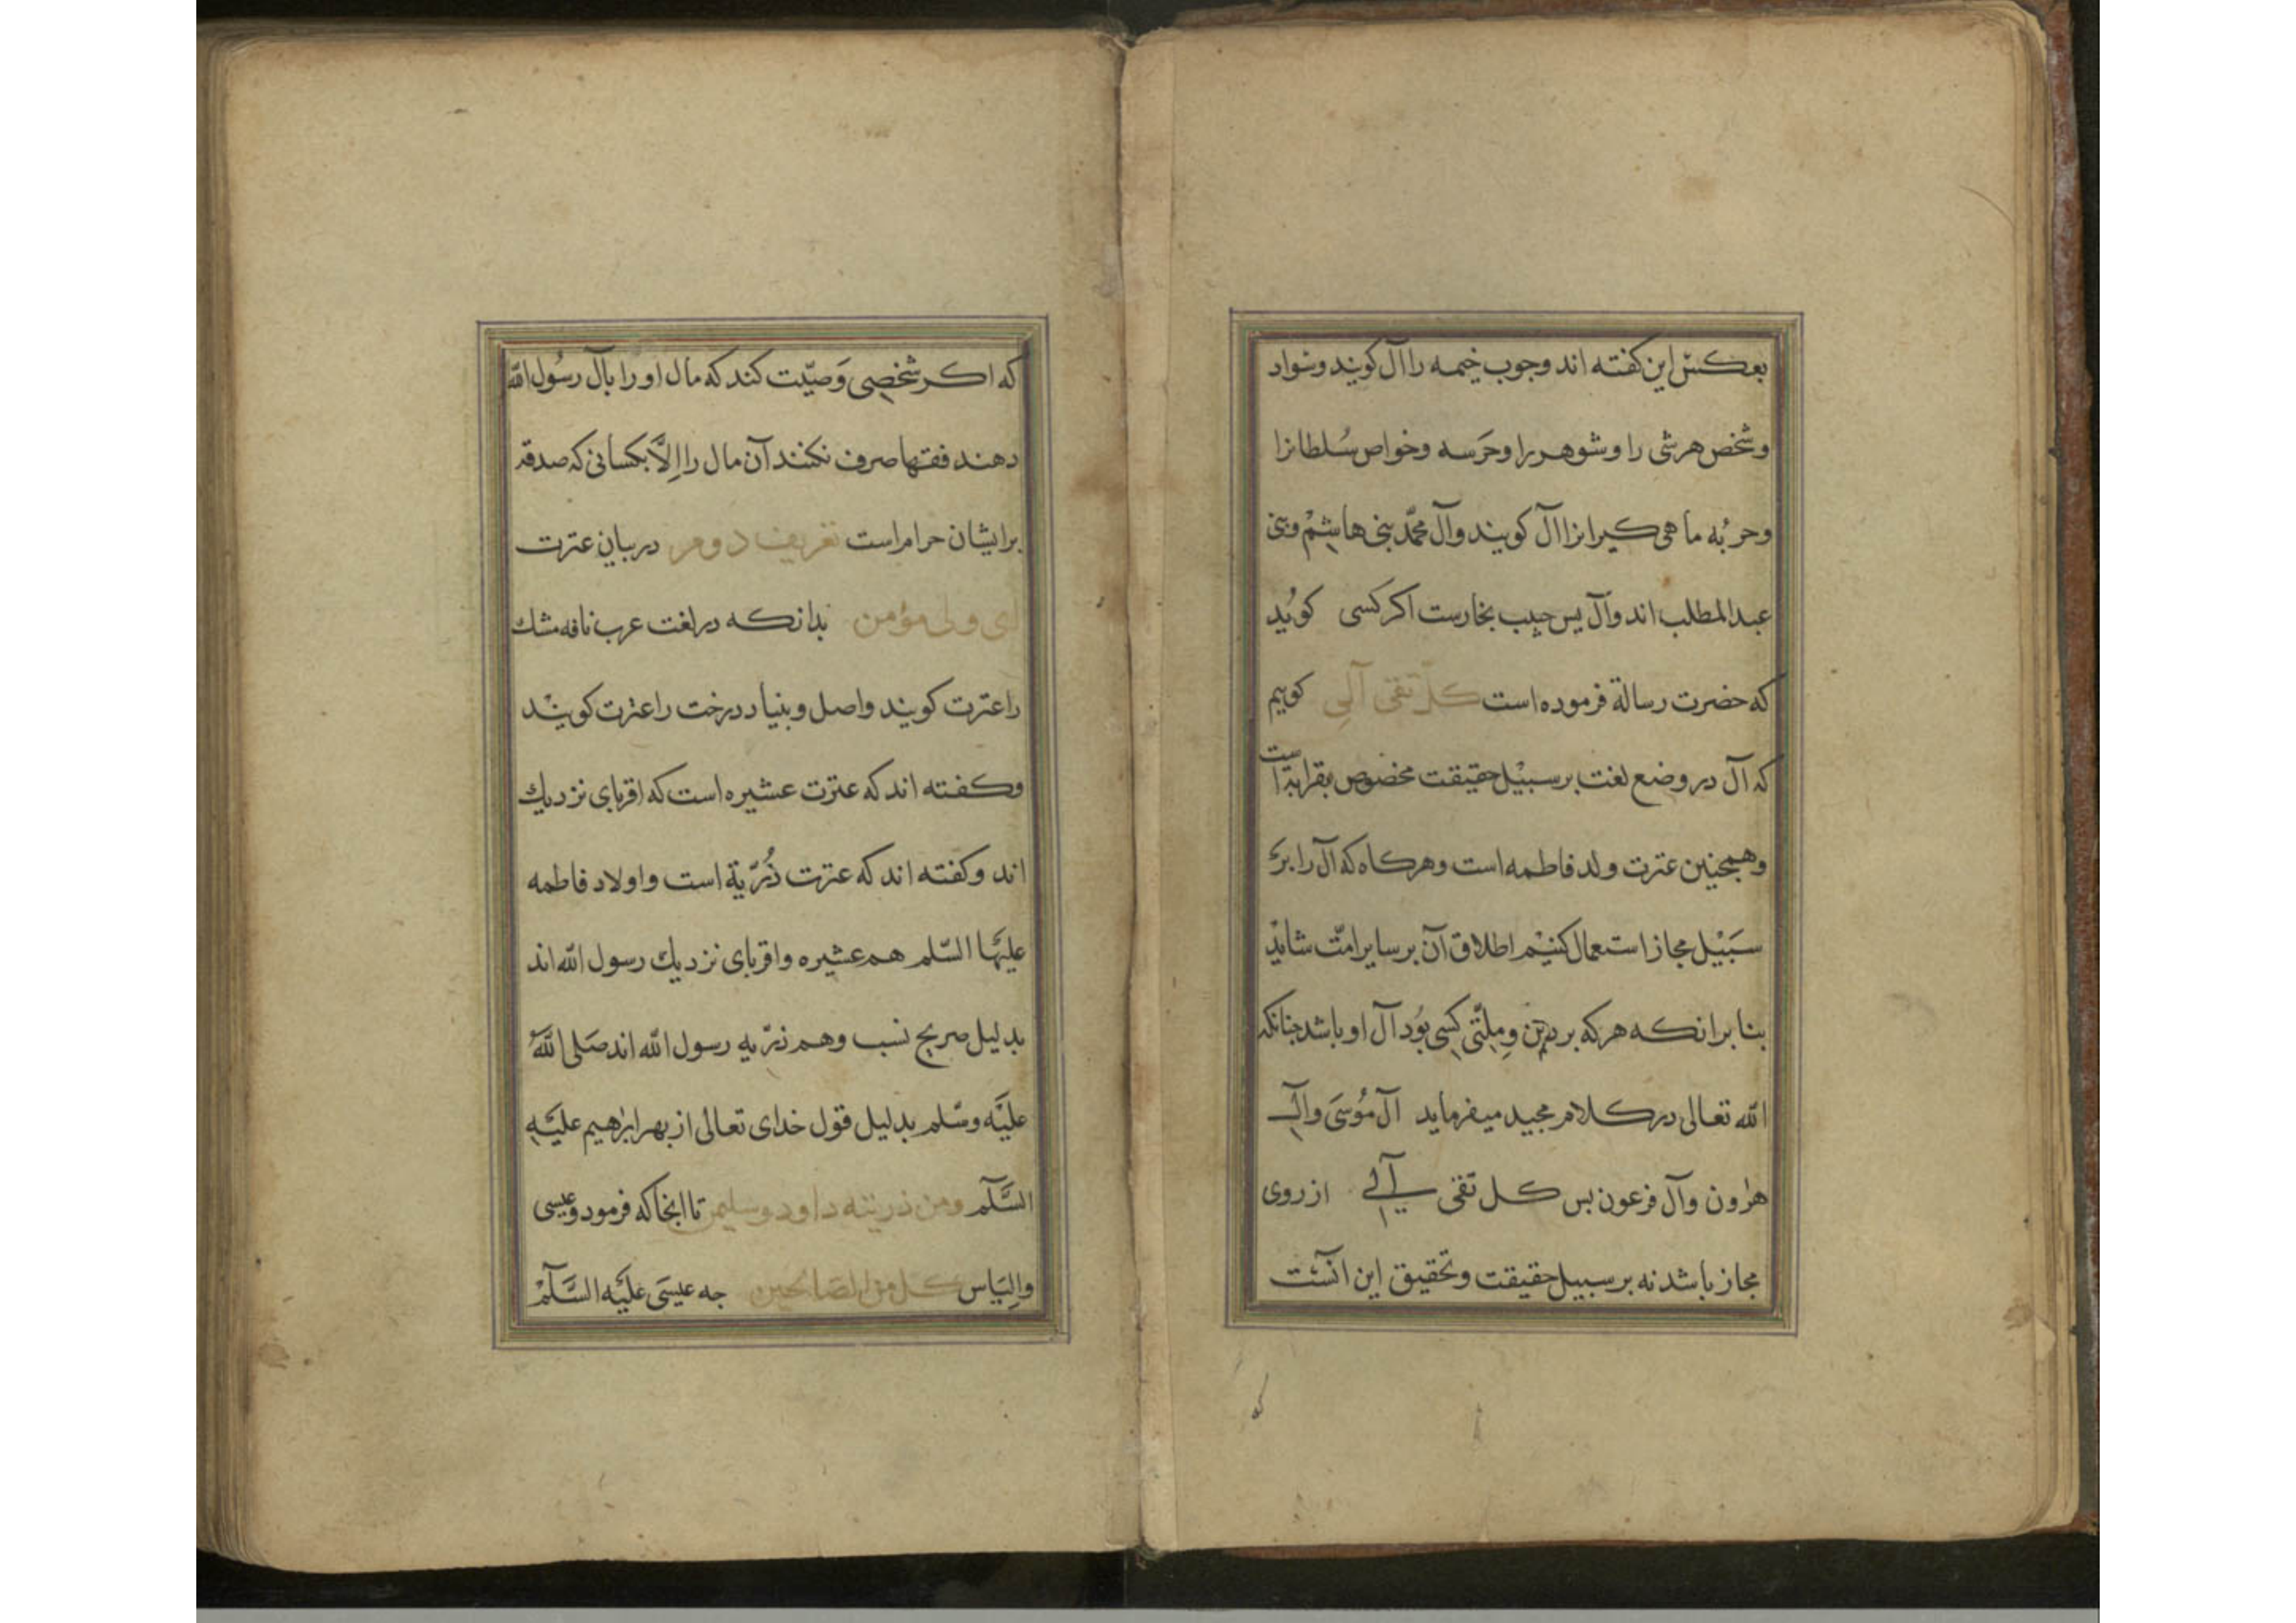 بعكس این كفته اند وجوب خیمه را آل كویند وسواد
وشخص هرشی را وشوهر را وحرسه وخواص سُلطانرا
وحربُه ماهی كیرانرا آل كویند وآل محمّد بنی هاشِمْ وبنی
عبدالمطلب اند وآل یس حبیب نجارست اكركسی كویُد
كه حضرت رسالة فرموده است كلّ تقی آلی كوییم
كه آل در وضع لغت بر سبیْل حقیقت مخصُوص بقرابة است
وهمجنین عترت ولد فاطمه است وهركاه كه آل را بر
سَبیْل مجاز استعمال كنیْم اطلاق آن بر سایر امّت شایْد
بنا برانكه هركه بر دین ومِلّتی كسی بوُد آل او باشد جنانكه
الله تعالی در كلام مجید میفرماید آل مُوسَی وآل
هرٰون وآل فرعون بس كل تقی آلی از روی
مجاز باشد نه بر سبیل حقیقت وتحقیق این آنست
كه اكر شخصی وَصیّت كند كه مال او را بآل رسُول الله
دهند فقها صرف نكنند آن مال را اِلاَّ بكسانی كه صدقه
بر ایشان حرام است تعریف دوم در بیان عترت
ای ولی مؤمن بدانكه در لغت عرب نافه مشك
را عترت كویند واصل وبنیاد درخت را عترت كویْند
وكفته اند كه عترت عشیره است كه اقربای نزدیك
اند وكفته اند كه عترت ذُرّیة است واولاد فاطمه
علیْهَا السّلم هم عشیره واقربای نزدیك رسول الله اند
بدلیل صریح نسب وهم ذرّیه رسول الله اند صَلی اللّه
علیَْه وسّلم بدلیل قول خدای تعالی از بهر ابرٰهیم علیَْهِ
السَّلَم ومن ذریته داود وسلیمن تا انجا كه فرمود وعیسی
واِلیَاس كل من الصّالحین جه عیسَی علیَْه السَّلَمْ